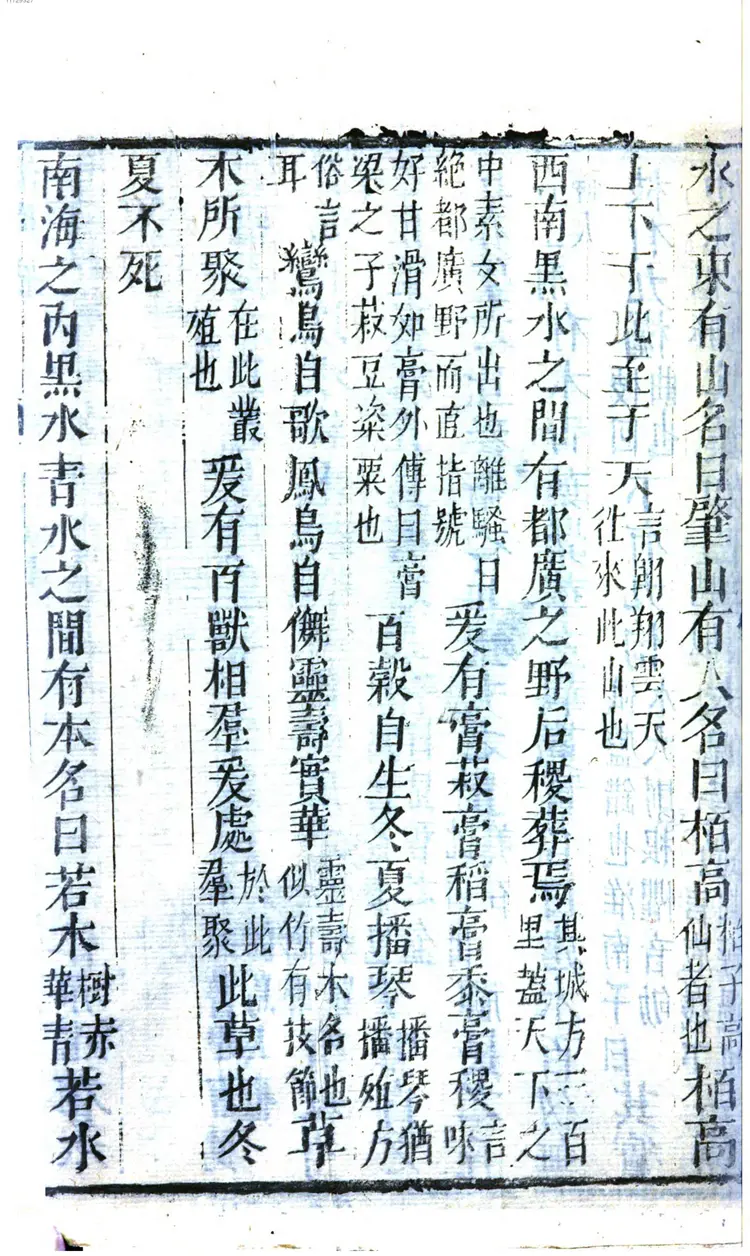 水之東有山名曰肇山有人名曰柏高柏子高仙者也柏高
上下于此至于天言翺翔雲天往來此山也
西南黑水之間有都廣之野后稷葬焉其城方三百里蓋天下之
中素女所出也離騷曰絕都廣野而直指號爰有膏菽膏稻膏黍膏稷言味
好甘滑如膏外傳曰膏粱之子菽豆粢粟也百穀自生冬夏播琴播琴猶播殖方
俗言耳鸞鳥自歌鳳鳥自儛靈壽實華靈壽木名也似竹有技節草
木所聚在此叢殖也爰有百獸相羣爰處於此羣聚此草也冬
夏不死
南海之內黑水青水之間有木名曰若木樹赤華青若水